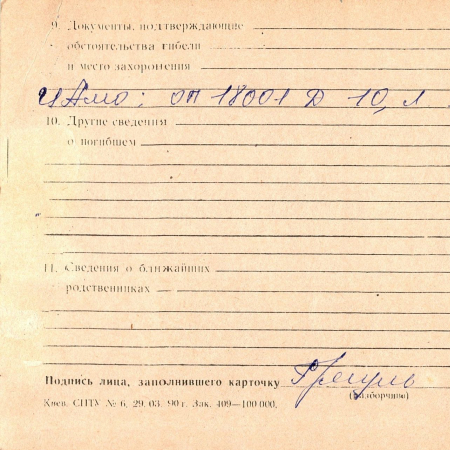 9. Документы, подтверждающие
обстоятельства гибели
и место захоронения
ЦАМО: оп 18001 Д 10, л
10. Другие сведения
о погибшем
11. Сведения о ближайших
родственниках
Подпись лица, заполнившего карточку
(разборчиво)
Киев. СПТУ № 6. 29. 03. 90 г. Зак. 409—100 000.